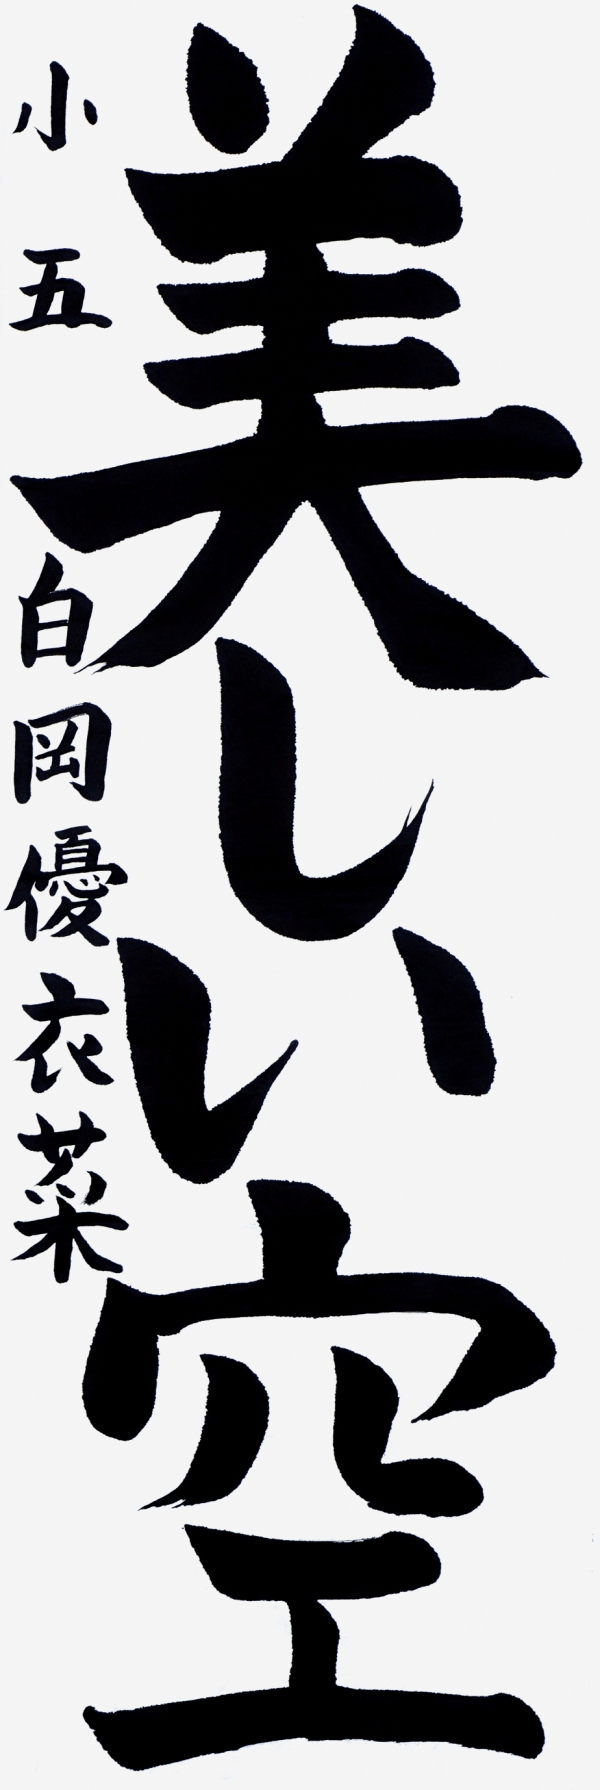 美しい空
小五 白岡優衣菜